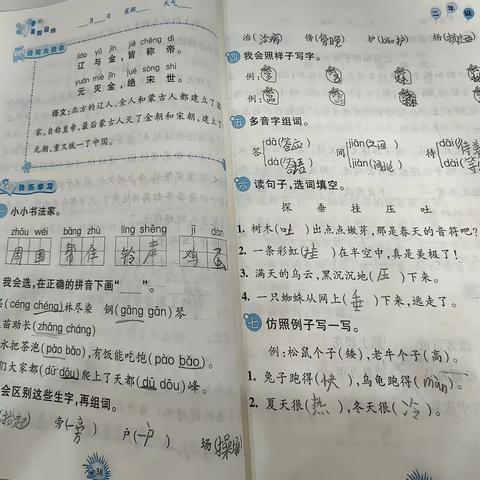 月 日 星期 天气
暑假园地
诗词大会
liáo yǔ jīn jiē chēng dì
辽 与 金，皆 称 帝。
yuán miè jīn jué sòng shì
元 灭 金，绝 宋 世。
译文：北方的辽人、金人和蒙古人都建立了国
家，自称皇帝，最后蒙古人灭了金朝和宋朝，建立了
元朝，重又统一了中国。
快乐学习
一 小小书法家。
zhōu wéi bāng zhù líng shēng jī dàn
周围 帮住 铃声 鸡蛋
我会选，在正确的拼音下画“ ”。
(céng chéng)林尽染 钢(gāng gān)琴
苗助长(zhǎng cháng)
水把茶泡(pào bǎo)，有饭能吃饱(pào bǎo)。
们大家都(dū dōu)爬上了天都(dū dōu)峰。
会区别这些生字，再组词。
(抬起) 旁(一旁) 户(一户) 场(操场)
38
二年级
治(治病) 傍(傍晚) 护(bǎo护) 扬(
四 我会照样子写字。
例：
例：
五 多音字组词。
答 dā(答应) 间 jiān(之间) 得 dài(
dá(答语) jiàn( děi(
六 读句子，选词填空。
探 垂 挂 压 吐
1. 树木(吐)出点点嫩芽，那是春天的音符吧？
2. 一条彩虹(挂)在半空中，真是美极了！
3. 满天的乌云，黑沉沉地(压)下来。
4. 一只蜘蛛从网上(垂)下来，逃走了。
七 仿照例子写一写。
例：松鼠个子(矮)，老牛个子(高)。
1. 兔子跑得(快)，乌龟跑得(màn)。
2. 夏天很(热)，冬天很(冷)。